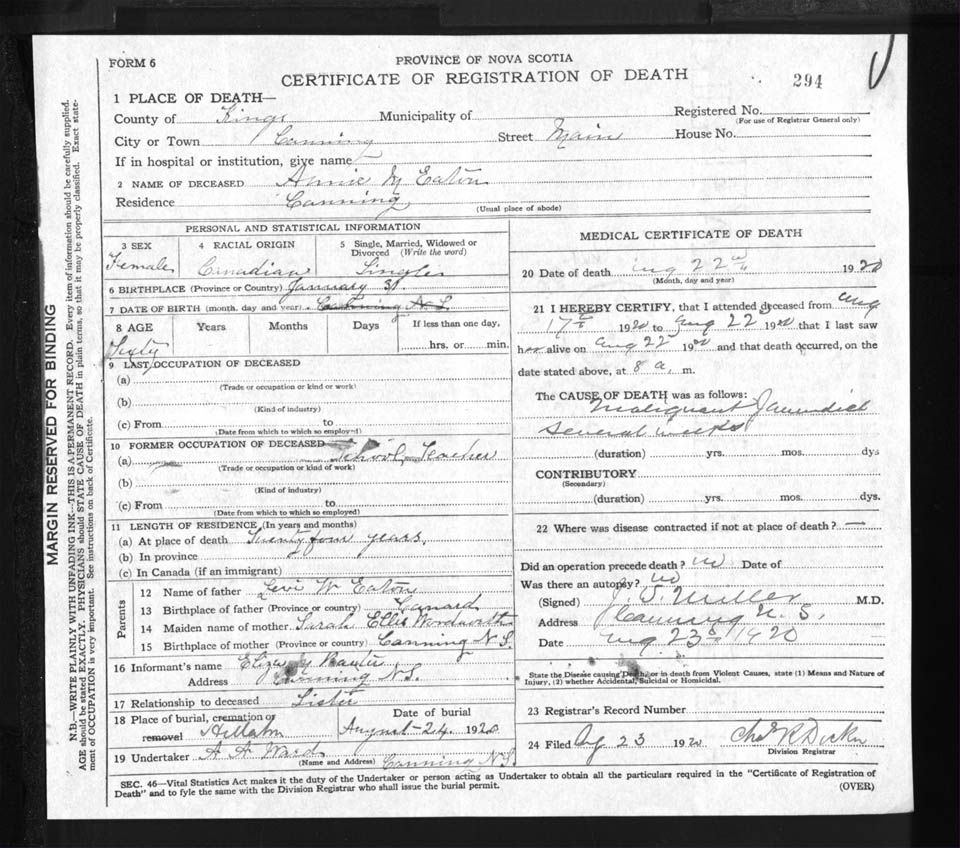 FORM 6
PROVINCE OF NOVA SCOTIA
CERTIFICATE OF REGISTRATION OF DEATH
294
1 PLACE OF DEATH—
County of Kings Municipality of Registered No.
(For use of Registrar General only)
City or Town Canning Street Main House No.
If in hospital or institution, give name
2 NAME OF DECEASED Annie M Eaton
Residence Canning
(Usual place of abode)
PERSONAL AND STATISTICAL INFORMATION
3 SEX 4 RACIAL ORIGIN 5 Single, Married, Widowed or
Divorced (Write the word)
Female Canadian Single
6 BIRTHPLACE (Province or Country) January 31
7 DATE OF BIRTH (month, day and year) Canning N.S.
8 AGE Years Months Days If less than one day,
Sixty hrs. or min.
9 LAST OCCUPATION OF DECEASED
(a)
(Trade or occupation or kind or work)
(b)
(Kind of industry)
(c) From to
(Date from which to which so employed)
10 FORMER OCCUPATION OF DECEASED
(a) School Teacher
(Trade or occupation or kind of work)
(b)
(Kind of industry)
(c) From to
(Date from which to which so employed)
11 LENGTH OF RESIDENCE (In years and months)
(a) At place of death Twenty four years.
(b) In province
(c) In Canada (if an immigrant)
Parents
12 Name of father Levi W Eaton
13 Birthplace of father (Province or country) Canard
14 Maiden name of mother Sarah Ells Woodworth
15 Birthplace of mother (Province or country) Canning N.S.
16 Informant's name
Address Canning N.S.
17 Relationship to deceased Sister
18 Place of burial, cremation or Date of burial
removed Hillaton August 24 1920
19 Undertaker A A Ward
(Name and Address) Canning N.S.
MEDICAL CERTIFICATE OF DEATH
20 Date of death Aug 22 1920
(Month, day and year)
21 I HEREBY CERTIFY, that I attended deceased from Aug
17th 1920 to Aug 22 1920 that I last saw
her alive on Aug 22 1920 and that death occurred, on the
date stated above, at 8 a. m.
The CAUSE OF DEATH was as follows:
Malignant Jaundice
several weeks
(duration) yrs. mos. dys
CONTRIBUTORY
(Secondary)
(duration) yrs. mos. dys.
22 Where was disease contracted if not at place of death? —
Did an operation precede death? no Date of
Was there an autopsy? no
(Signed) J. S. Miller M.D.
Address Canning N.S.
Date Aug 23 1920
State the Disease causing Death, or in death from Violent Causes, state (1) Means and Nature of
Injury, (2) whether Accidental, Suicidal or Homicidal.
23 Registrar's Record Number
24 Filed Aug 23 1920
Division Registrar
SEC. 46—Vital Statistics Act makes it the duty of the Undertaker or person acting as Undertaker to obtain all the particulars required in the "Certificate of Registration of
Death" and to fyle the same with the Division Registrar who shall issue the burial permit. (OVER)
MARGIN RESERVED FOR BINDING
N.B.—WRITE PLAINLY WITH UNFADING INK—THIS IS A PERMANENT RECORD. Every item of information should be carefully supplied.
AGE should be stated EXACTLY. PHYSICIANS should STATE CAUSE OF DEATH in plain terms, so that it may be properly classified. Exact state-
ment of OCCUPATION is very important. See instructions on back of Certificate.